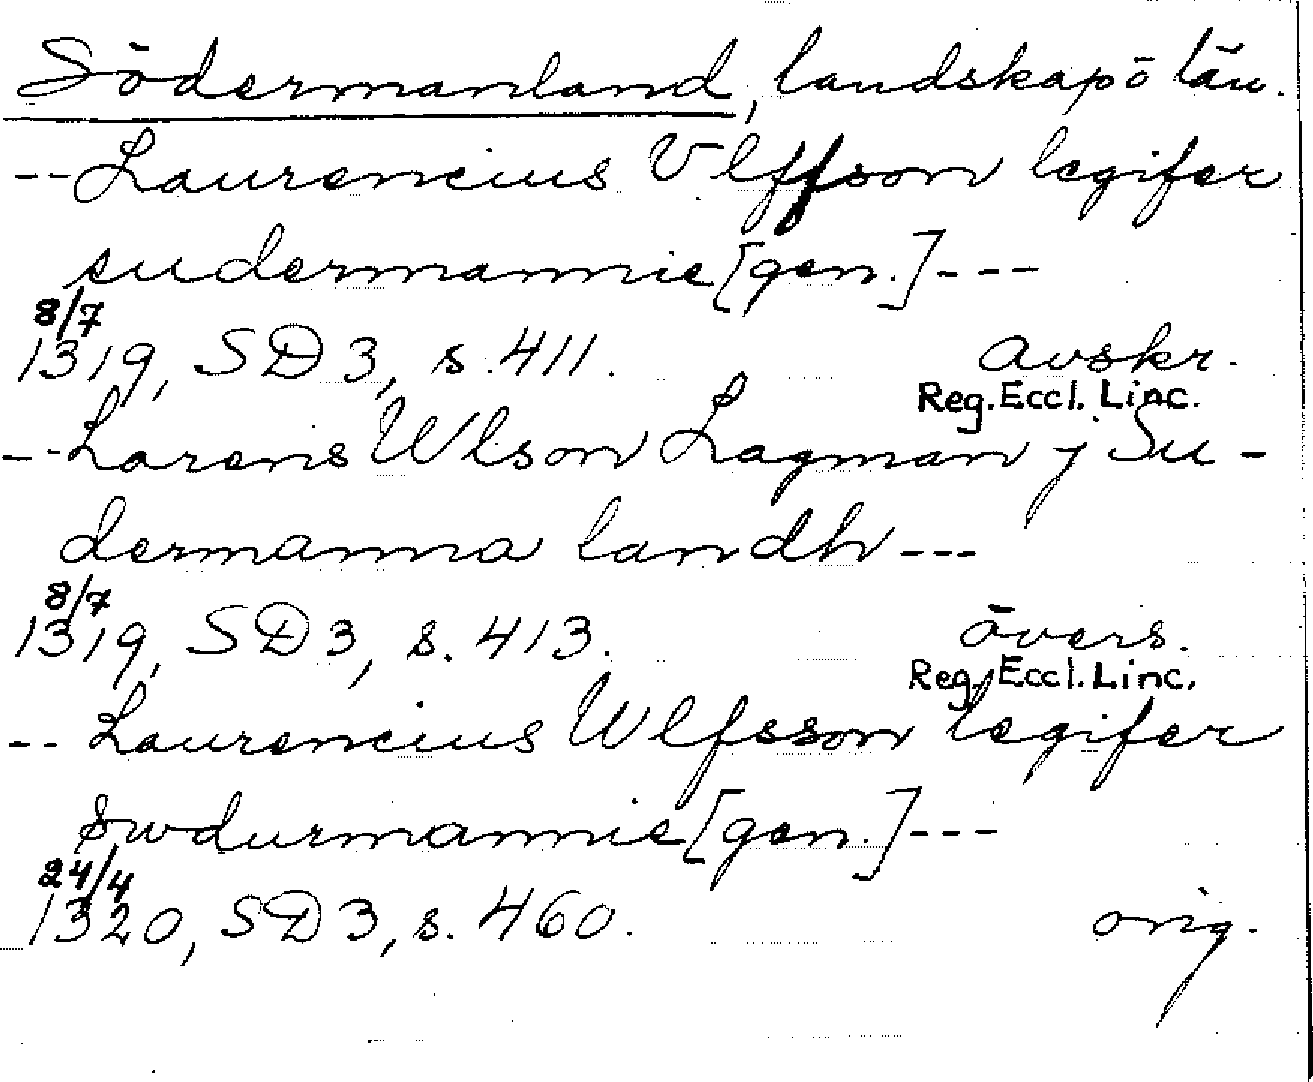 Södermanland, landskap o län.
-- Laurencius Vlffson legifer
sudermannie [gen.] ---
8/7
1319, SD 3, s. 411. avskr.
Reg. Eccl. Linc.
-- Larens Wlson Lagman j Su-
dermanna landh ---
8/7
1319, SD 3, s. 413. övers.
Reg. Eccl. Linc.
-- Laurencius Wlfsson legifer
swdurmannie [gen.] ---
24/4
1320, SD 3, s. 460. orig.